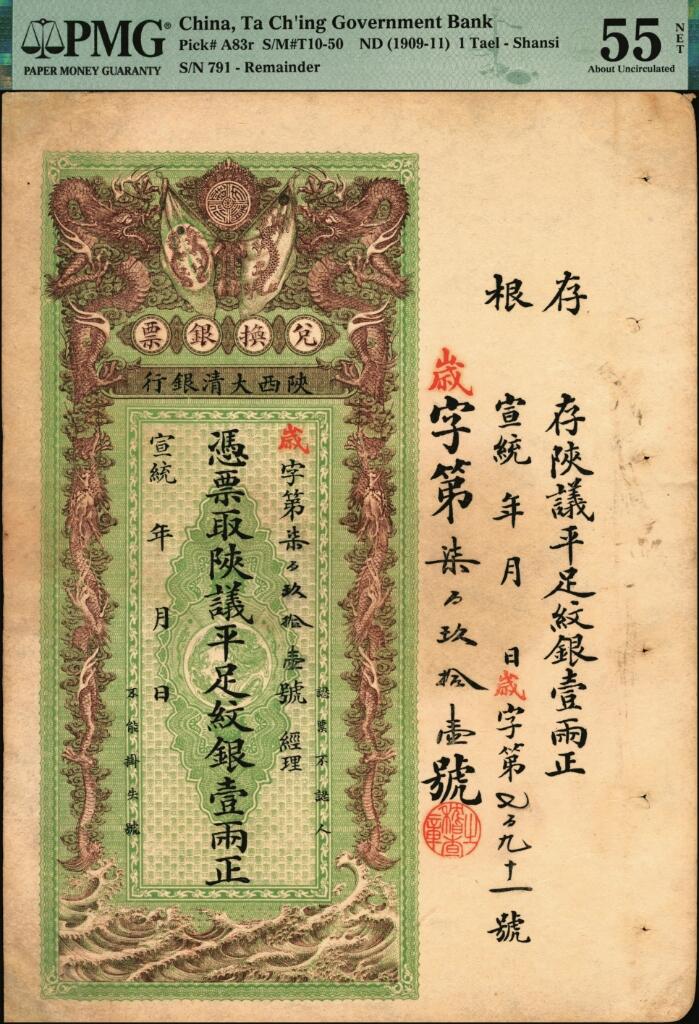 PMG
PAPER MONEY GUARANTY
China, Ta Ch'ing Government Bank
Pick# A83r S/M#T10-50 ND (1909-11) 1 Tael - Shansi
S/N 791 - Remainder
55
NET
About Uncirculated
兌換銀票
陝西大清銀行
歲字第柒百玖拾壹號 經理
憑票取陝議平足紋銀壹兩正
宣統 年 月 日
認票不認人
不能掛失號
存根
存陝議平足紋銀壹兩正
宣統 年 月 日 歲字第 百九十一 號
歲字第柒百玖拾壹號